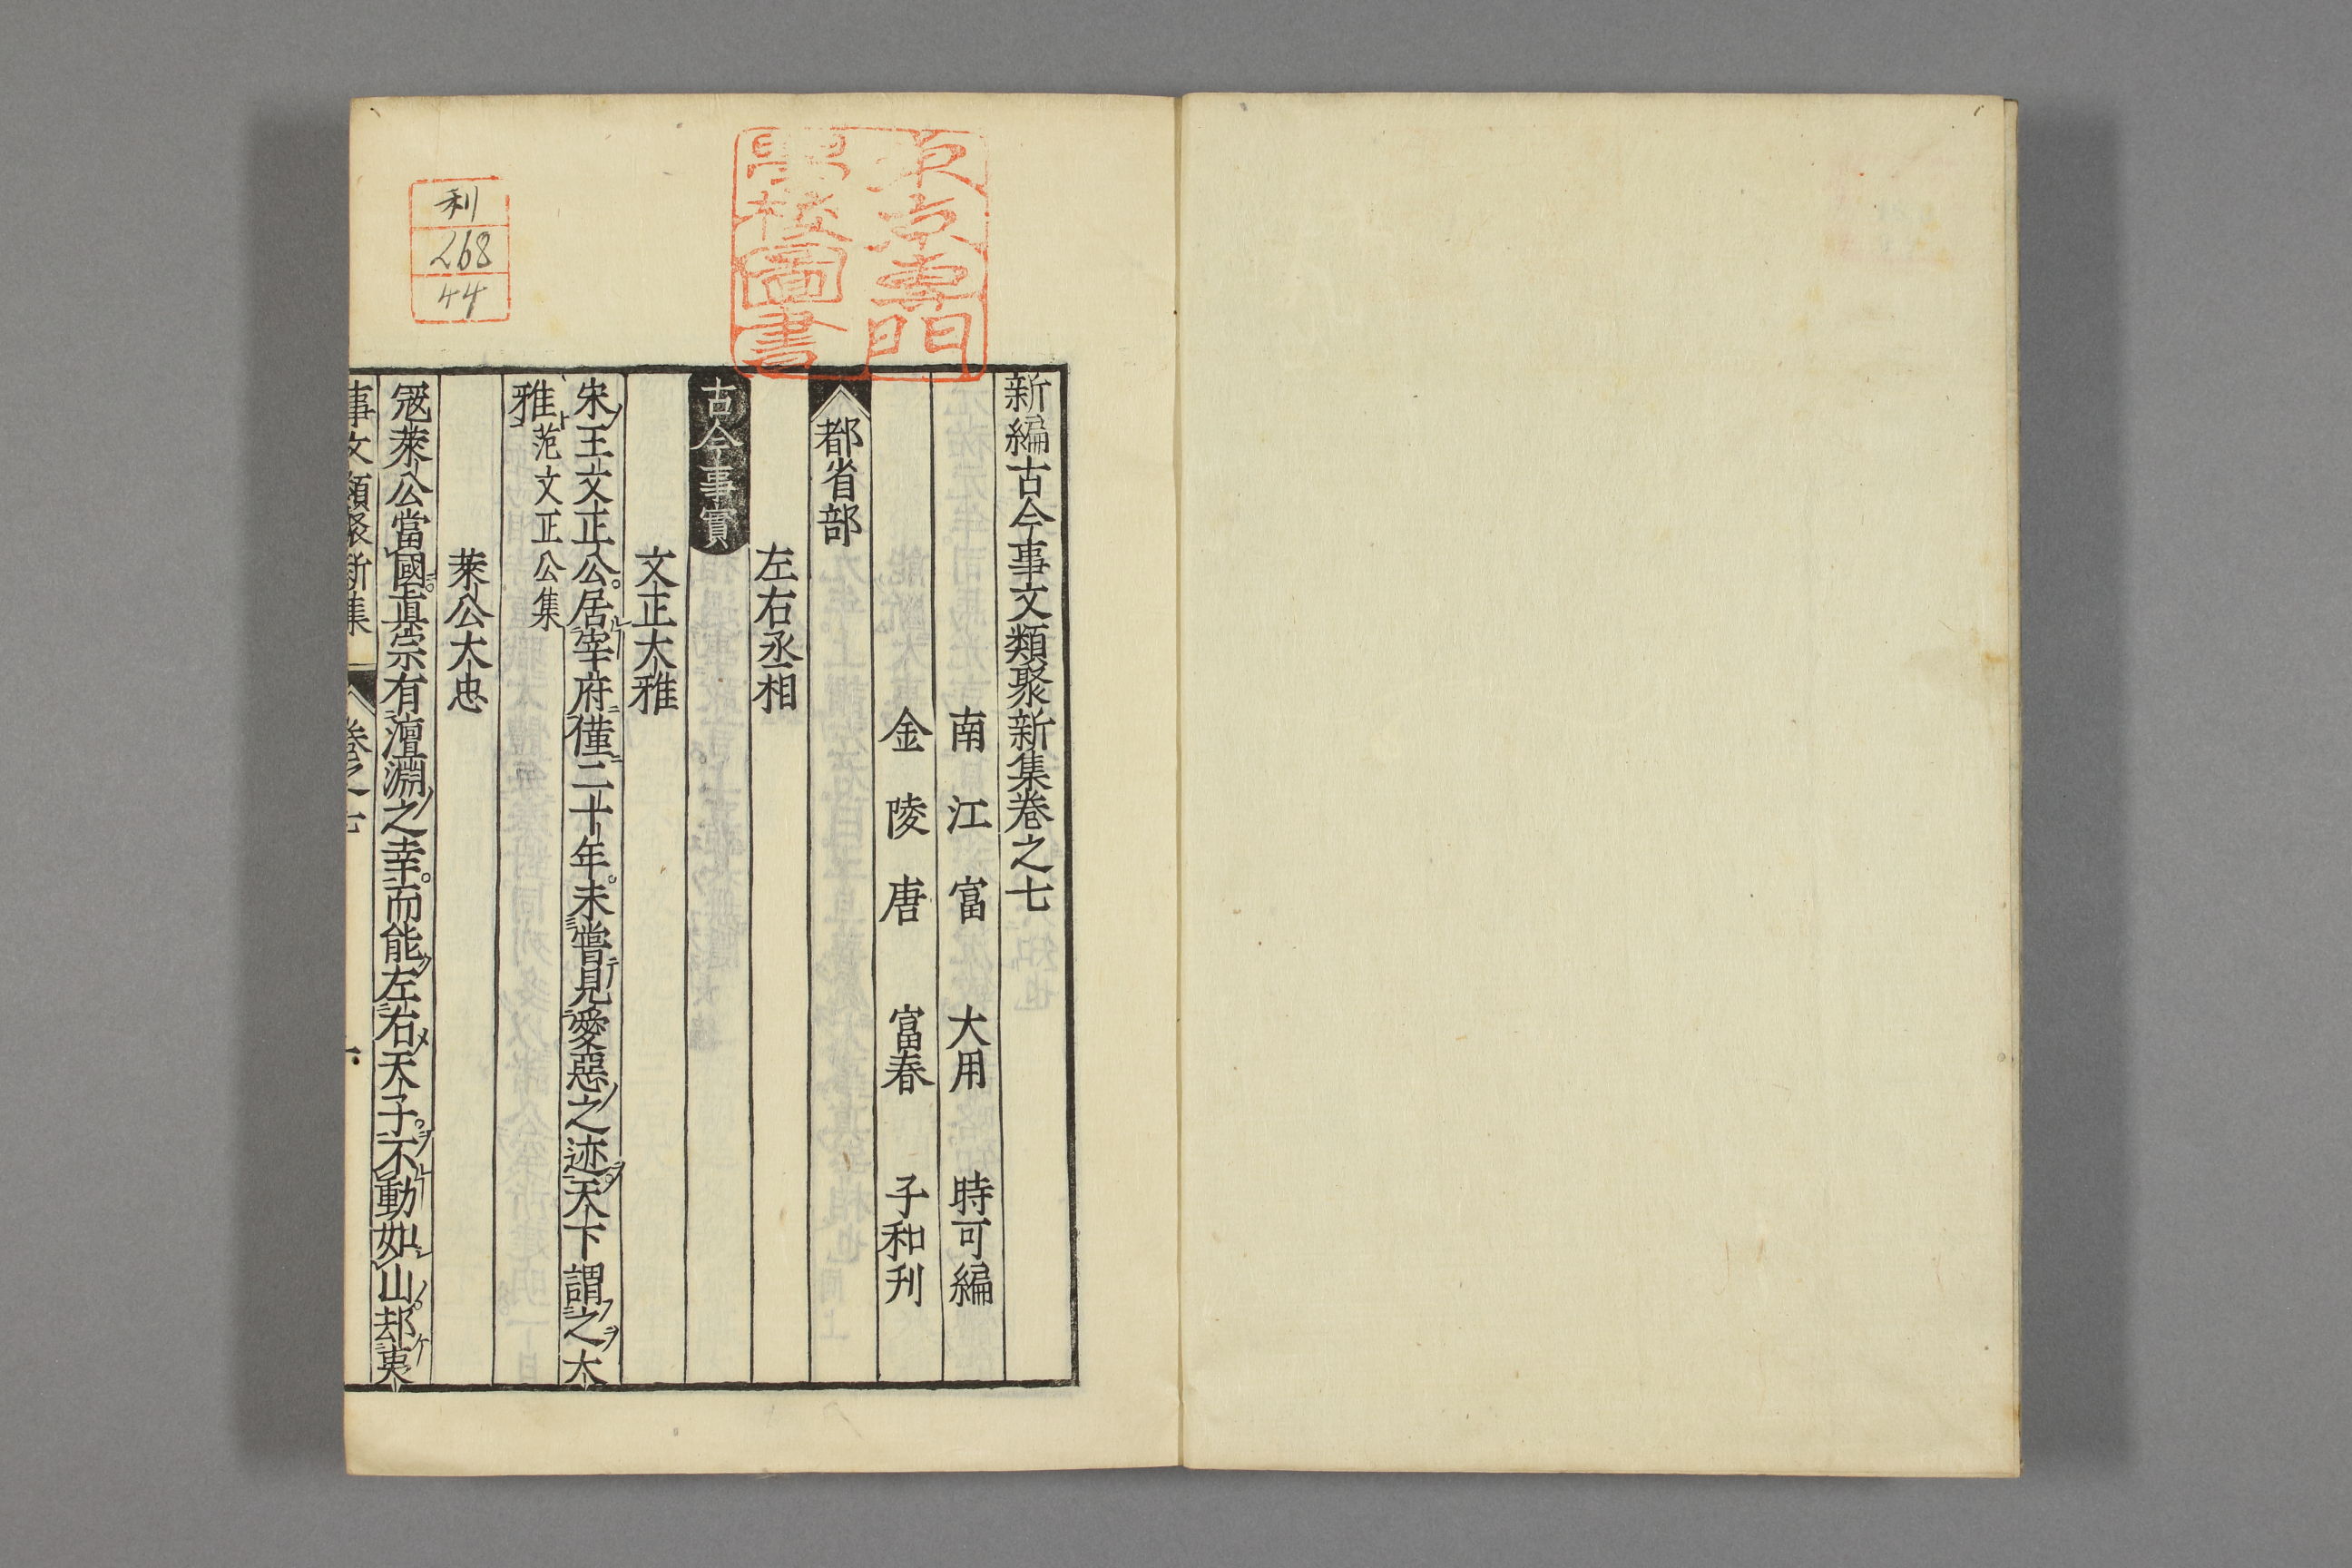 新編古今事文類聚新集卷之七
南江富　大用　時可編
金陵唐　富春　子和刊
都省部
左右丞相
古今事實
文正大雅
宋王文正公居宰府僅二十年未嘗見愛惡之迹天下謂之大
雅范文正公集
萊公大忠
冦萊公當國眞宗有澶淵之幸而能左右天子不動如山却夷
事文類聚新集　卷之七　一
東京專門
學校圖書
利
268
44